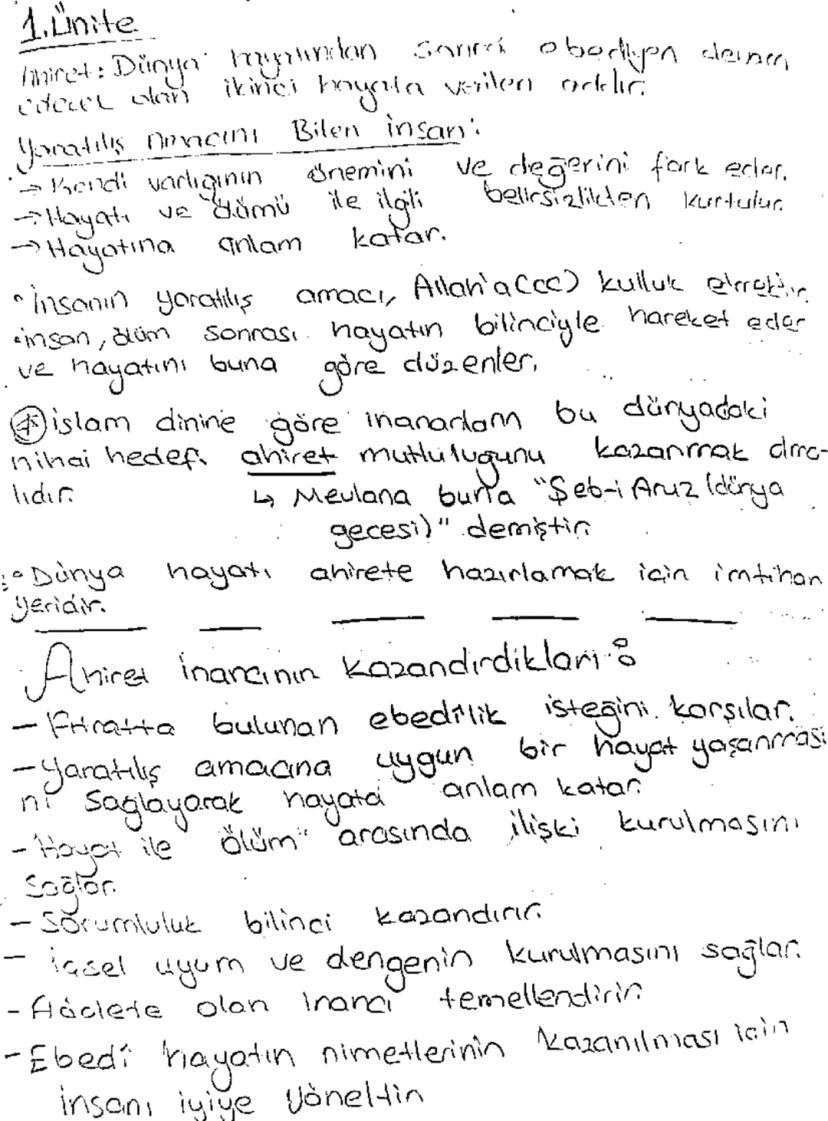 1.Ünite
Ahiret: Dünya hayatından sonra ebediyen devam
edecek olan ikinci hayata verilen addır.
Yaratılış Amacını Bilen İnsan:
→ Kendi varlığının önemini ve değerini fark eder.
→ Hayatı ve ölümü ile ilgili belirsizlikten kurtulur.
→ Hayatına anlam katar.
• İnsanın yaratılış amacı, Allah'a(cc) kulluk etmektir.
• insan, ölüm sonrası hayatın bilinciyle hareket eder
ve hayatını buna göre düzenler.
* islam dinine göre inananların bu dünyadaki
nihai hedefi ahiret mutluluğunu kazanmak olma-
lıdır.
↳ Mevlana buna "Şeb-i Aruz (dünya
gecesi)" demiştir.
• Dünya hayatı ahirete hazırlamak için imtihan
yeridir.
Ahiret inancının kazandırdıkları:
- Fıtratta bulunan ebedilik isteğini karşılar.
- Yaratılış amacına uygun bir hayat yaşanması
nı sağlayarak hayata anlam katar.
- Hayat ile "ölüm" arasında ilişki kurulmasını
sağlar.
- Sorumluluk bilinci kazandırır.
- içsel uyum ve dengenin kurulmasını sağlar.
- Adalete olan inancı temellendirir.
- Ebedî hayatın nimetlerinin kazanılması için
insanı iyiye yöneltir.